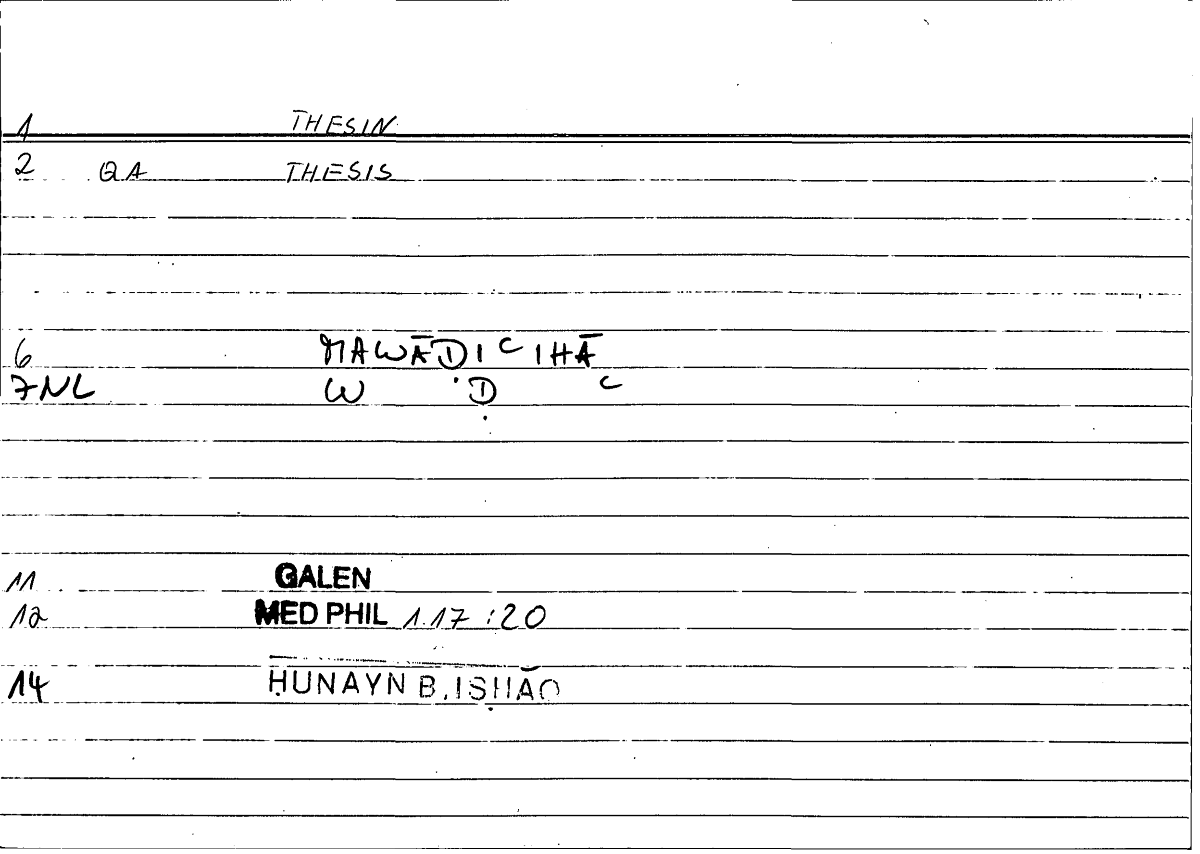 1 THESIN
2 QA THESIS
6 MAWĀḌIʿIHĀ
7NL W Ḍ ʿ
11 GALEN
12 MED PHIL 1.17 :20
14 ḤUNAYN B. ISḤĀQ